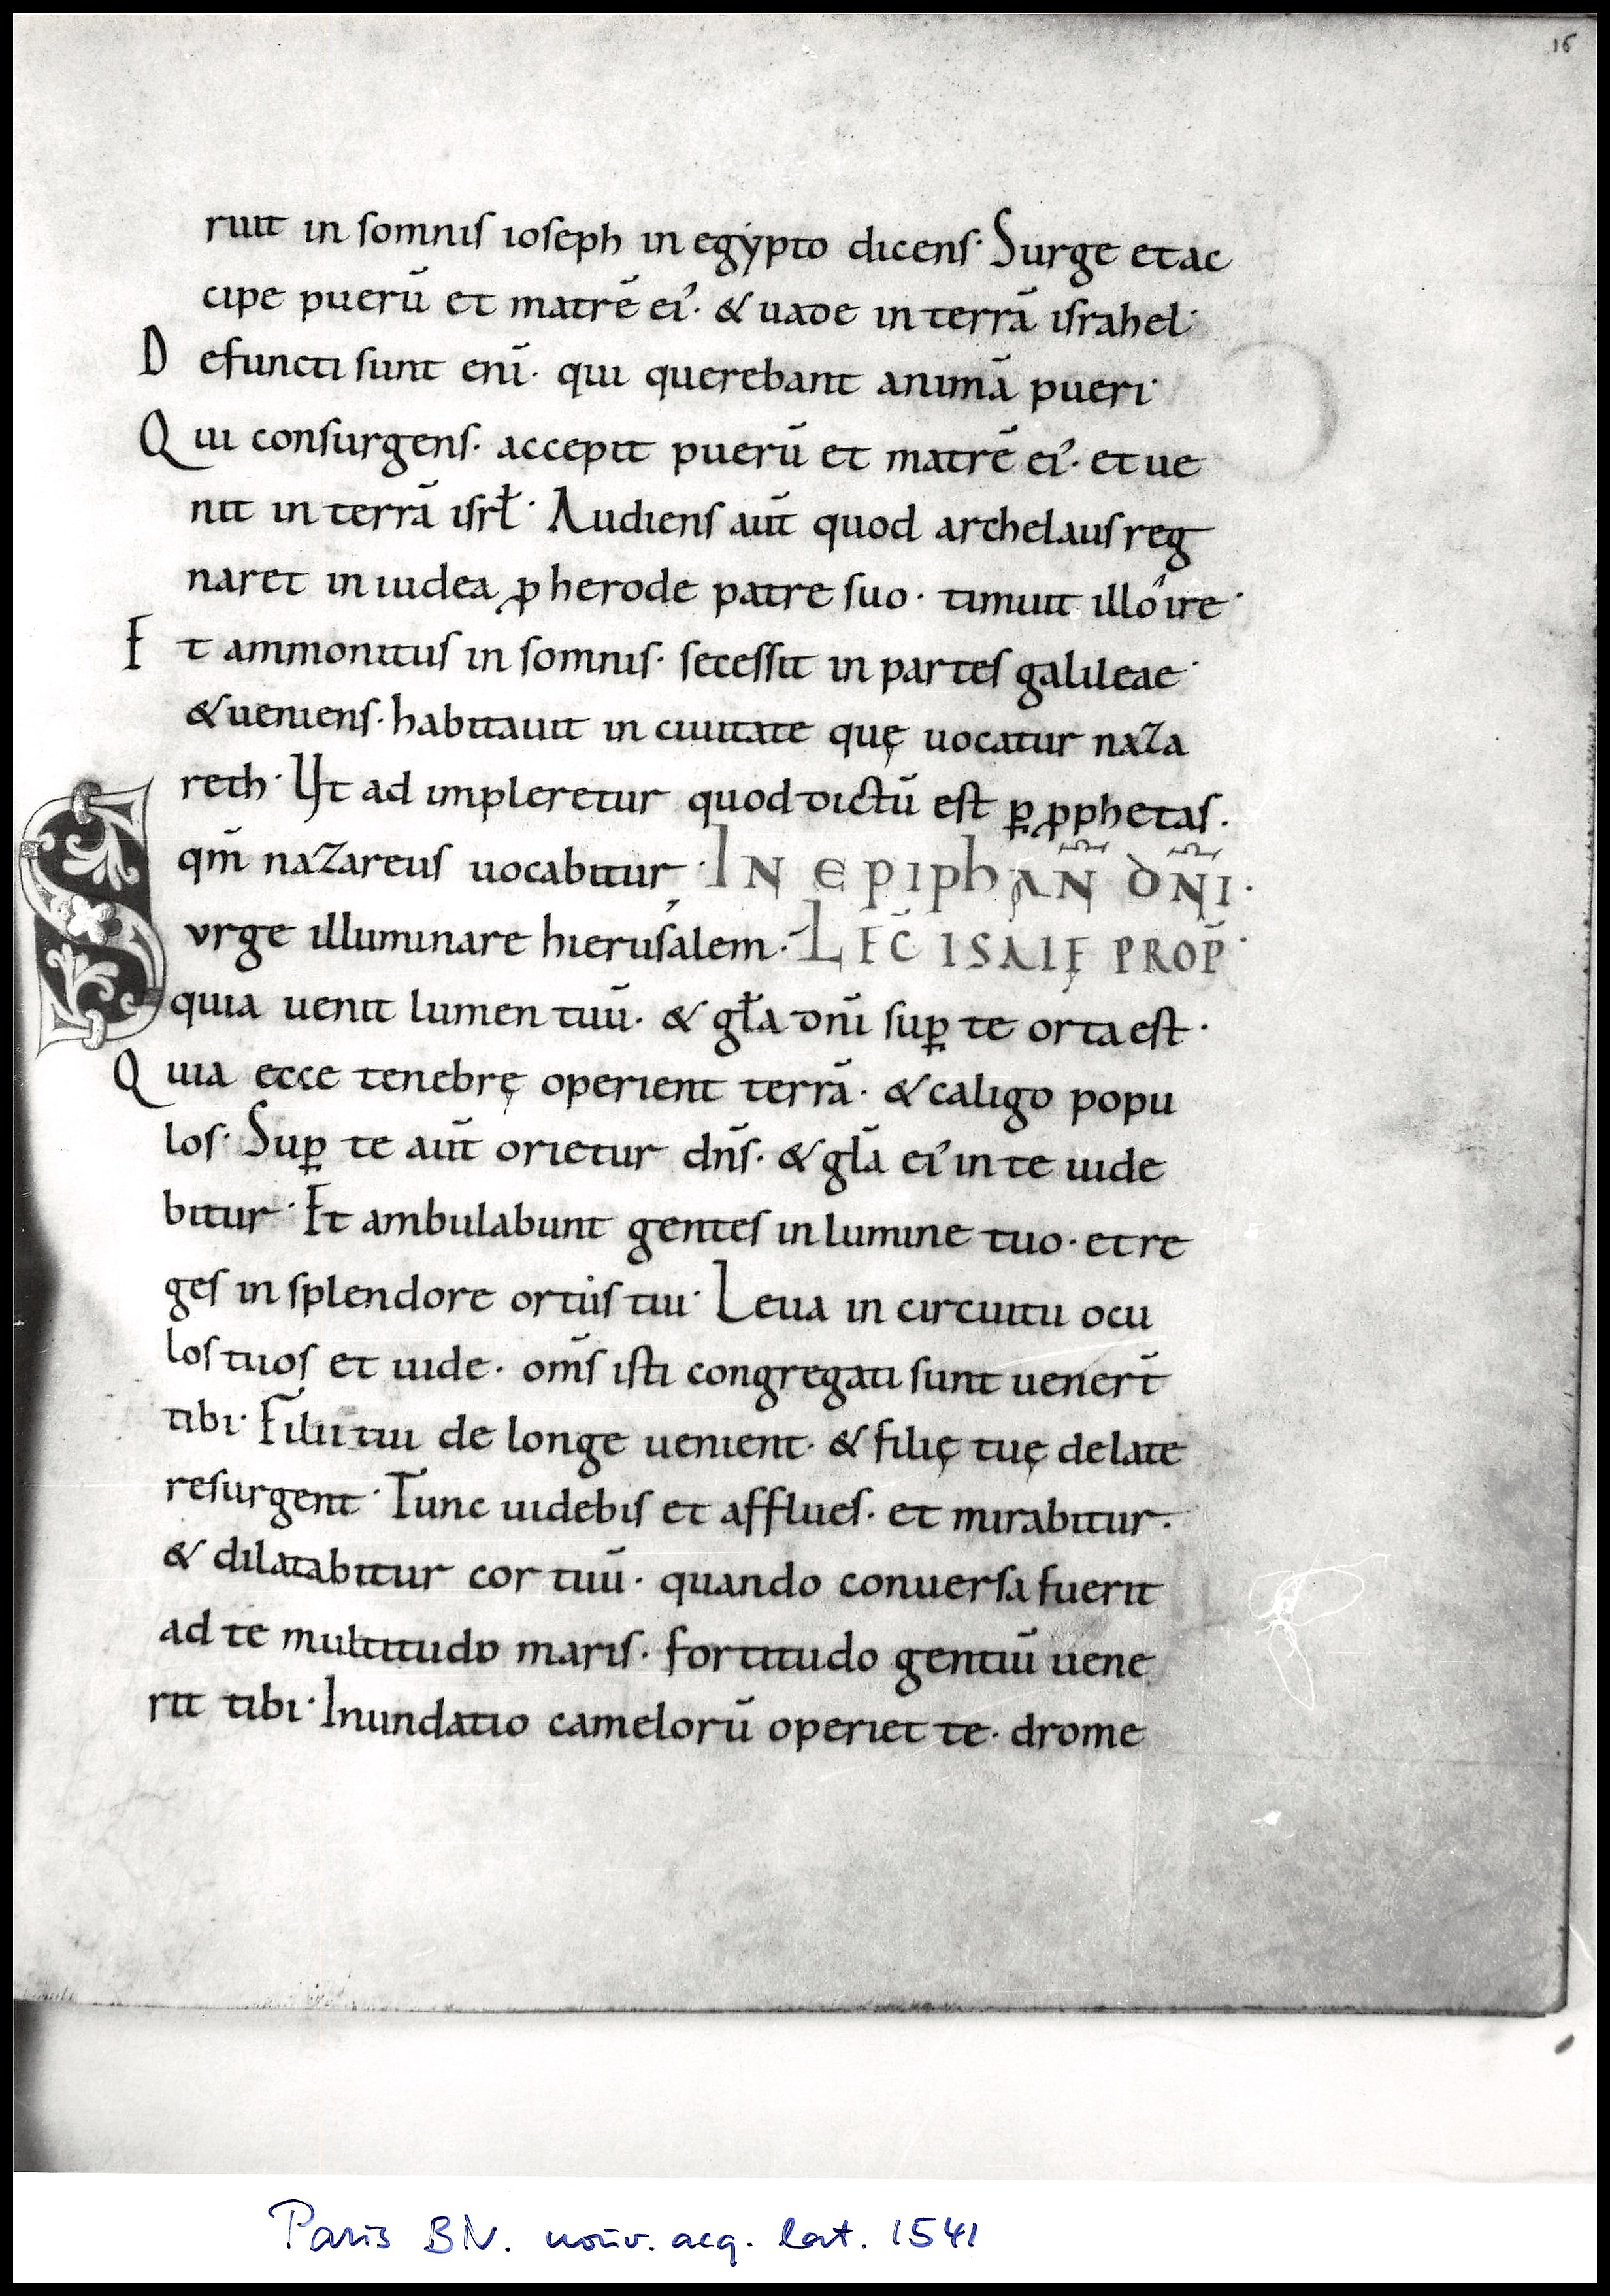 16
ruit in somnis ioseph in egypto dicens· Surge et ac
cipe puerū et matrē ei᾿· & uade in terrā israhel·
Defuncti sunt enī· qui querebant animā pueri·
Qui consurgens· accepit puerū et matrē ei᾿· et ue
nit in terrā isrł· Audiens aūt quod archelaus reg
naret in iudea ꝓ herode patre suo· timuit illo ire·
Et ammonitus in somnis· secessit in partes galileae·
& ueniens· habitauit in ciuitate quę uocatur naza
reth· Ut ad impleretur quod dictū est ꝑ ꝓphetas·
qm̄ nazareus uocabitur· IN EPIPHAN̄ DN̄I·
Surge illuminare hierusálem· LEC̄ ISAIĘ PROP̄·
quia uenit lumen tuū· & gła dn̄i suꝑ te orta est·
Quia ecce tenebrę operient terrā· & caligo popu
los· Suꝑ te aūt orietur dn̄s· & glā ei᾿ in te uide
bitur· Et ambulabunt gentes in lumine tuo· et re
ges in splendore ortus tui· Leua in circuitu ocu
los tuos et uide· om̄s isti congregati sunt uener̄t
tibi· Filii tui de longe uenient· & filię tuę de late
re surgent· Tunc uidebis et afflues· et mirabitur·
& dilatabitur cor tuū· quando conuersa fuerit
ad te multitudo maris· fortitudo gentiū uene
rit tibi· Inundatio camelorū operiet te· drome
Paris BN. nouv. acq. lat. 1541